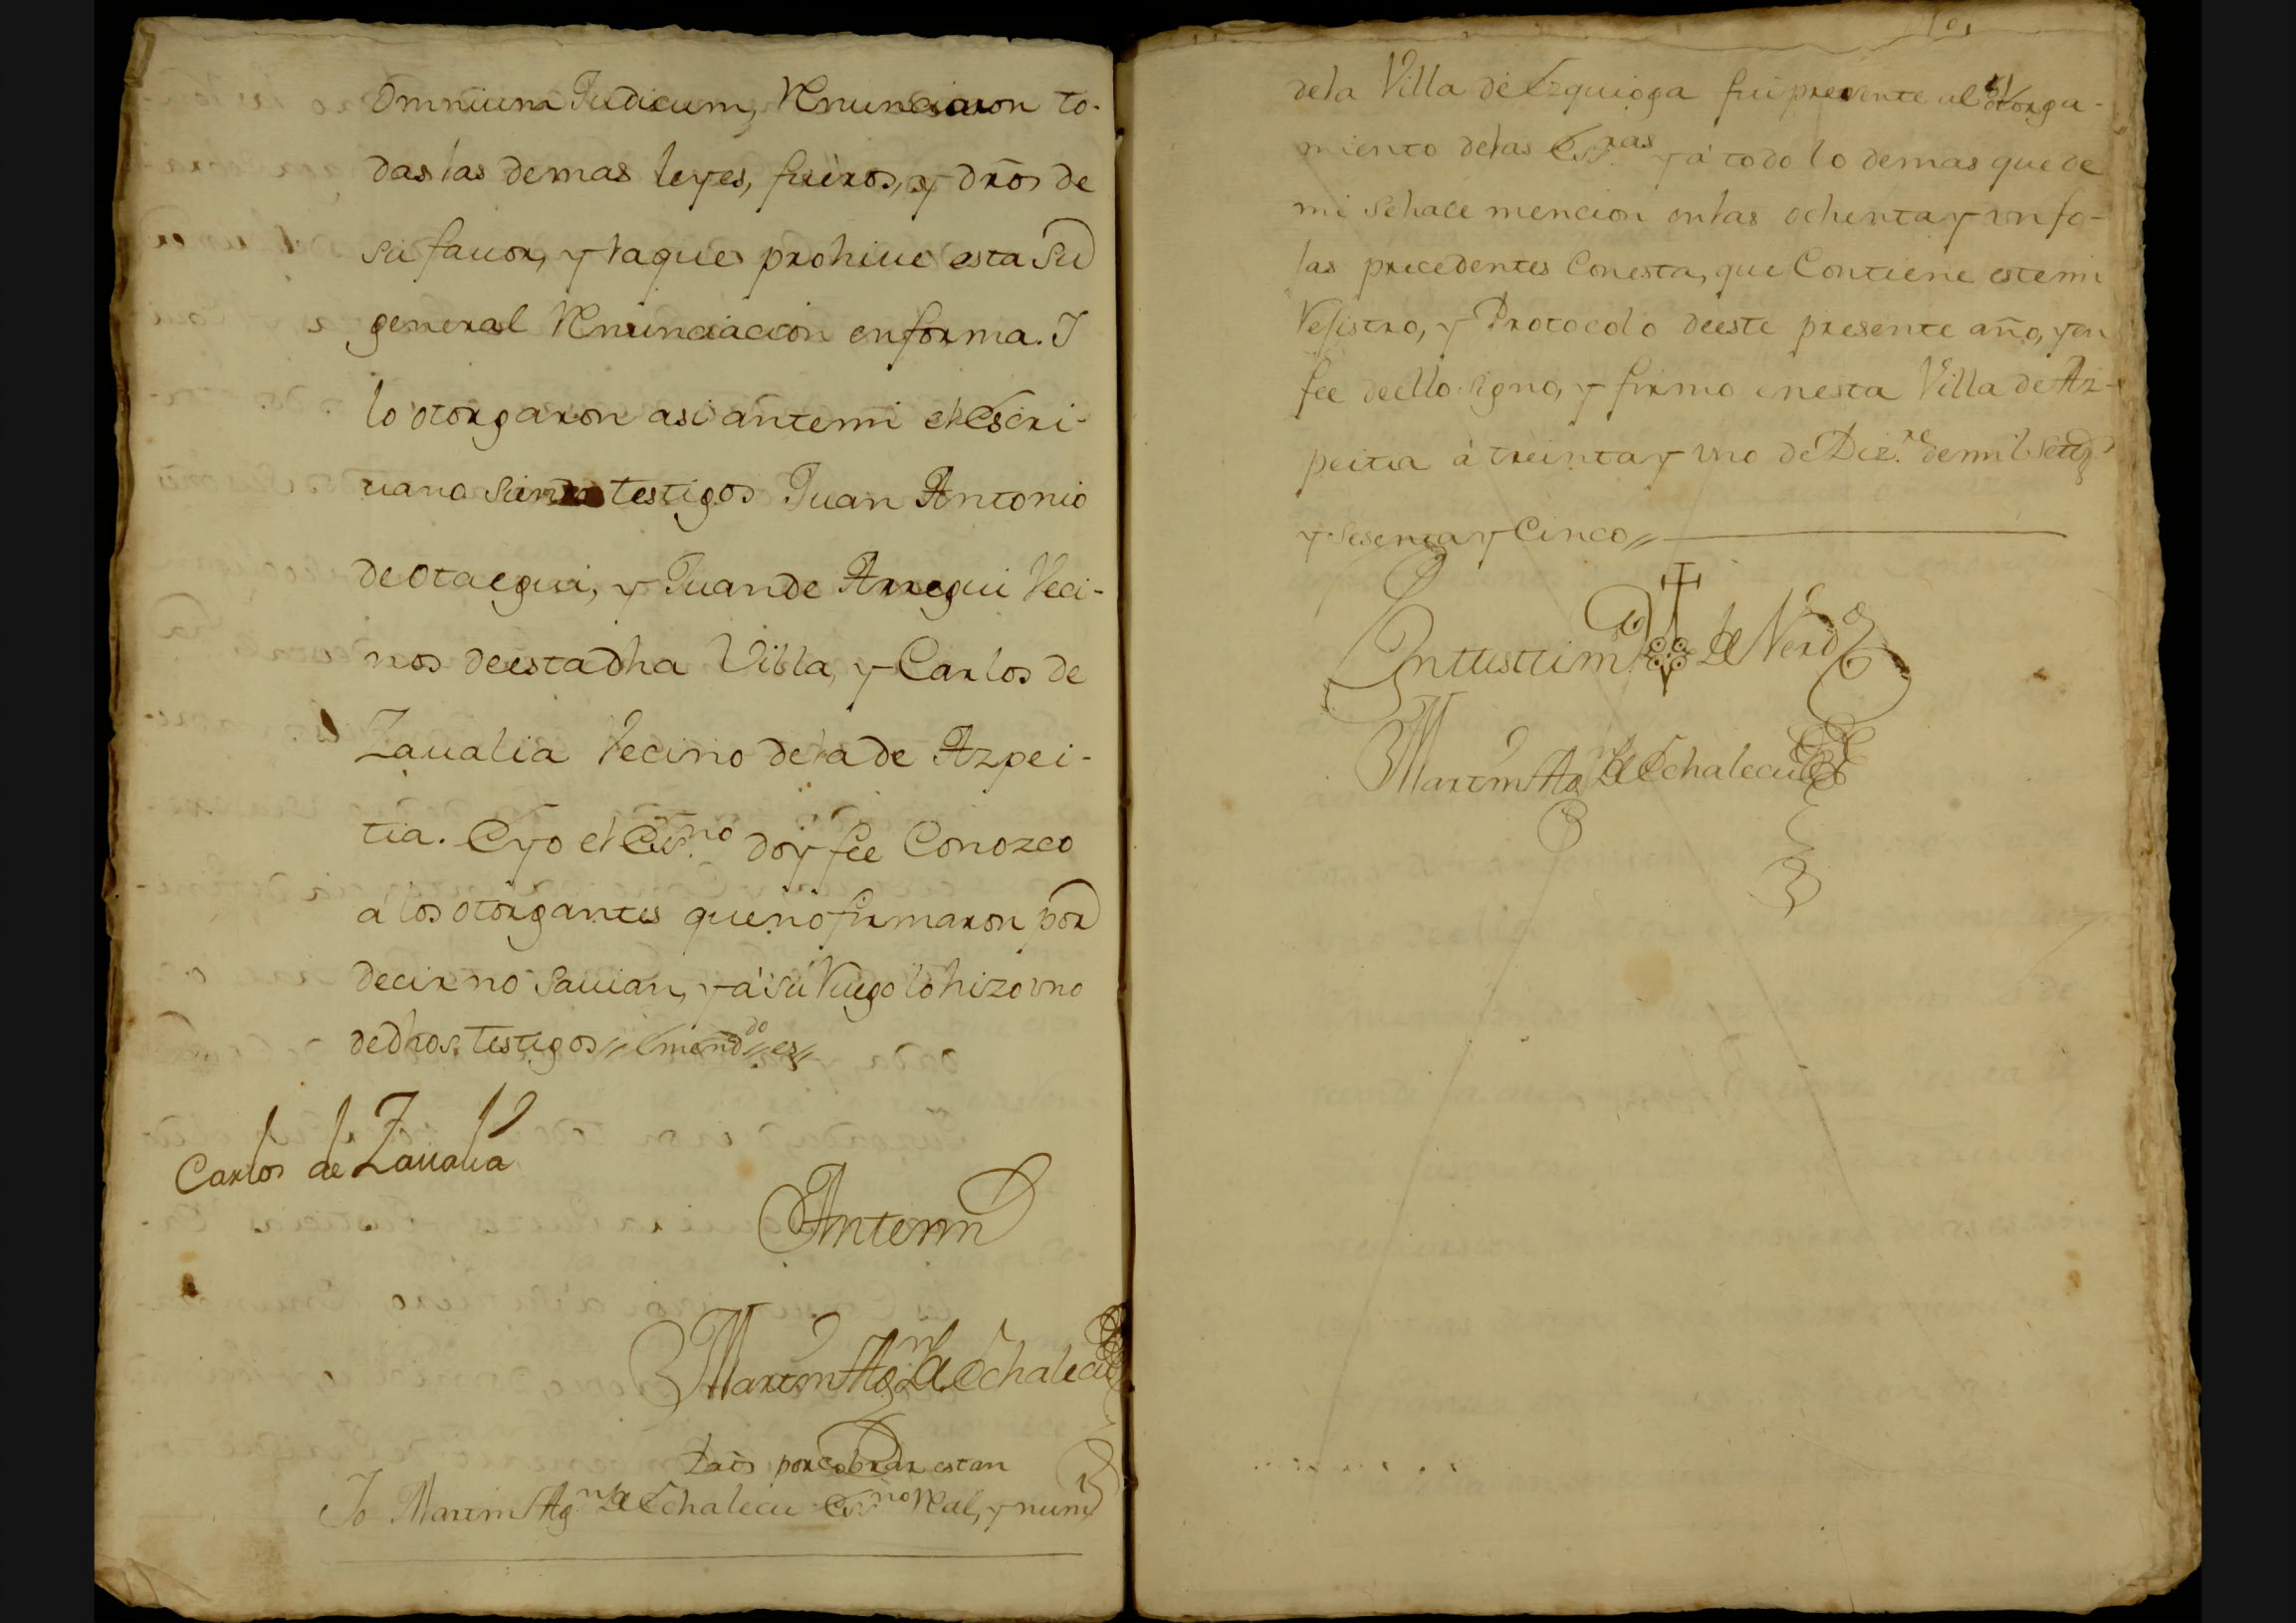 omnium Judicum, Renunciaron to-
das las demas leyes, fueros, y dros de
su favor, y la que prohiue esta su
general Renunciacion en forma. I
lo otorgaron asi ante mi el Escri-
uano siendo testigos Juan Antonio
de Otaegui, y Juan de Arregui Veci-
nos de esta dha Villa, y Carlos de
Zaualia Vecino de la de Azpei-
tia. E yo el Essno doy fee Conozco
a los otorgantes que no firmaron por
decir no sauian, y a su Ruego lo hizo vno
de dhos testigos // Emendo // es //
Carlos de Zaualia
Ante mi
Martin Agn de Echalecu
Drōs por cobrar estan
Yo Martin Agn de Echalecu Essno Real, y num
de la Villa de Ezquioga fui presente al otorga-
miento de las Essras y á todo lo demas que de
mi se hace mencion en las ochenta y vn fo-
las precedentes Con esta, que Contiene este mi
Rexistro, y Protocolo de este presente año, y en
fee de ello signo, y firmo en esta Villa de Az-
peitia á treinta y vno de Dizre de mil setezs
y sesenta y Cinco //
En testim.o de Verd
Martin Agn de Echalecu